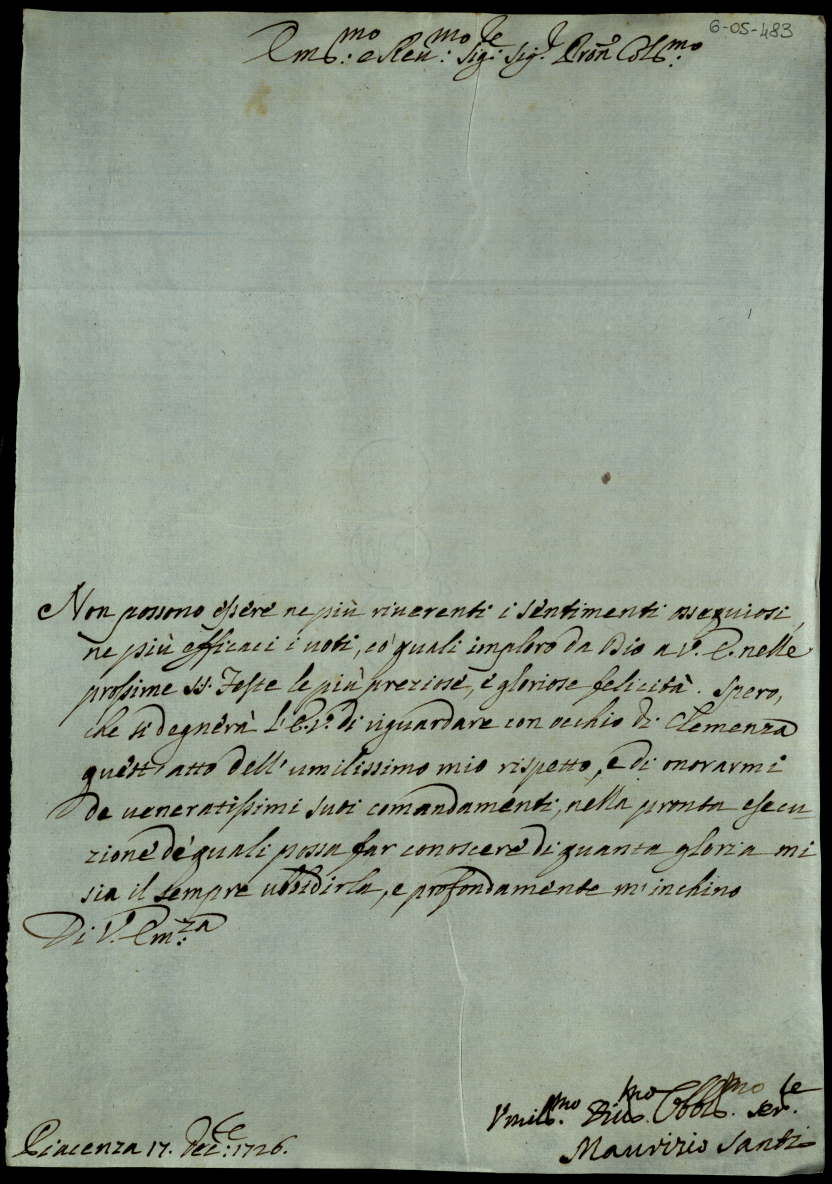 6-05-483
Em.mo e Reu.mo Sig.re Sig.r Pron Col.mo
Non possono essere ne più riuerenti i sentimenti ossequiosi,
ne più efficaci i uoti, co' quali imploro da Dio a V. E. nelle
prossime SS. Feste le più preziose, e gloriose felicità. Spero,
che si degnerà l'E.V. di riguardare con occhio di Clemenza
quest'atto dell'umilissimo mio rispetto, e di onorarmi
de ueneratissimi suoi comandamenti, nella pronta esecu
zione de' quali possa far conoscere di quanta gloria mi
sia il sempre ubbidirla, e profondamente m'inchino
Di V. Em.za
Piacenza 17. Dec.re 1726.
Vmil.mo Diu.mo Obbl.mo Ser.re
Maurizio Santi